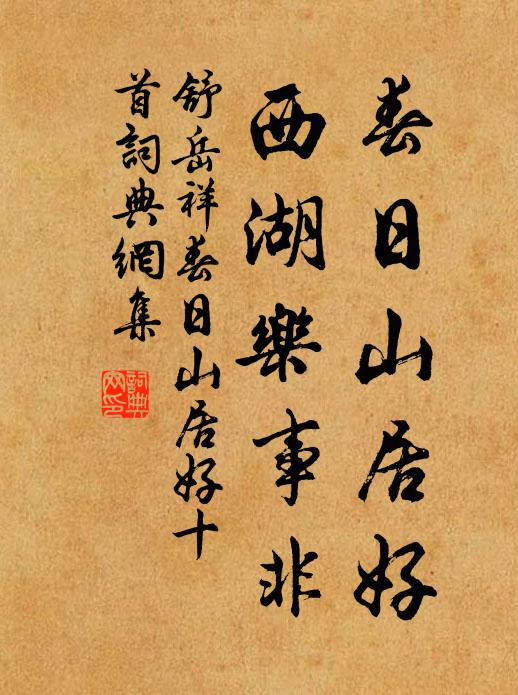 春日山居好
西湖樂事非
舒岳祥春日山居好十
首詞典網集
詞典
网印